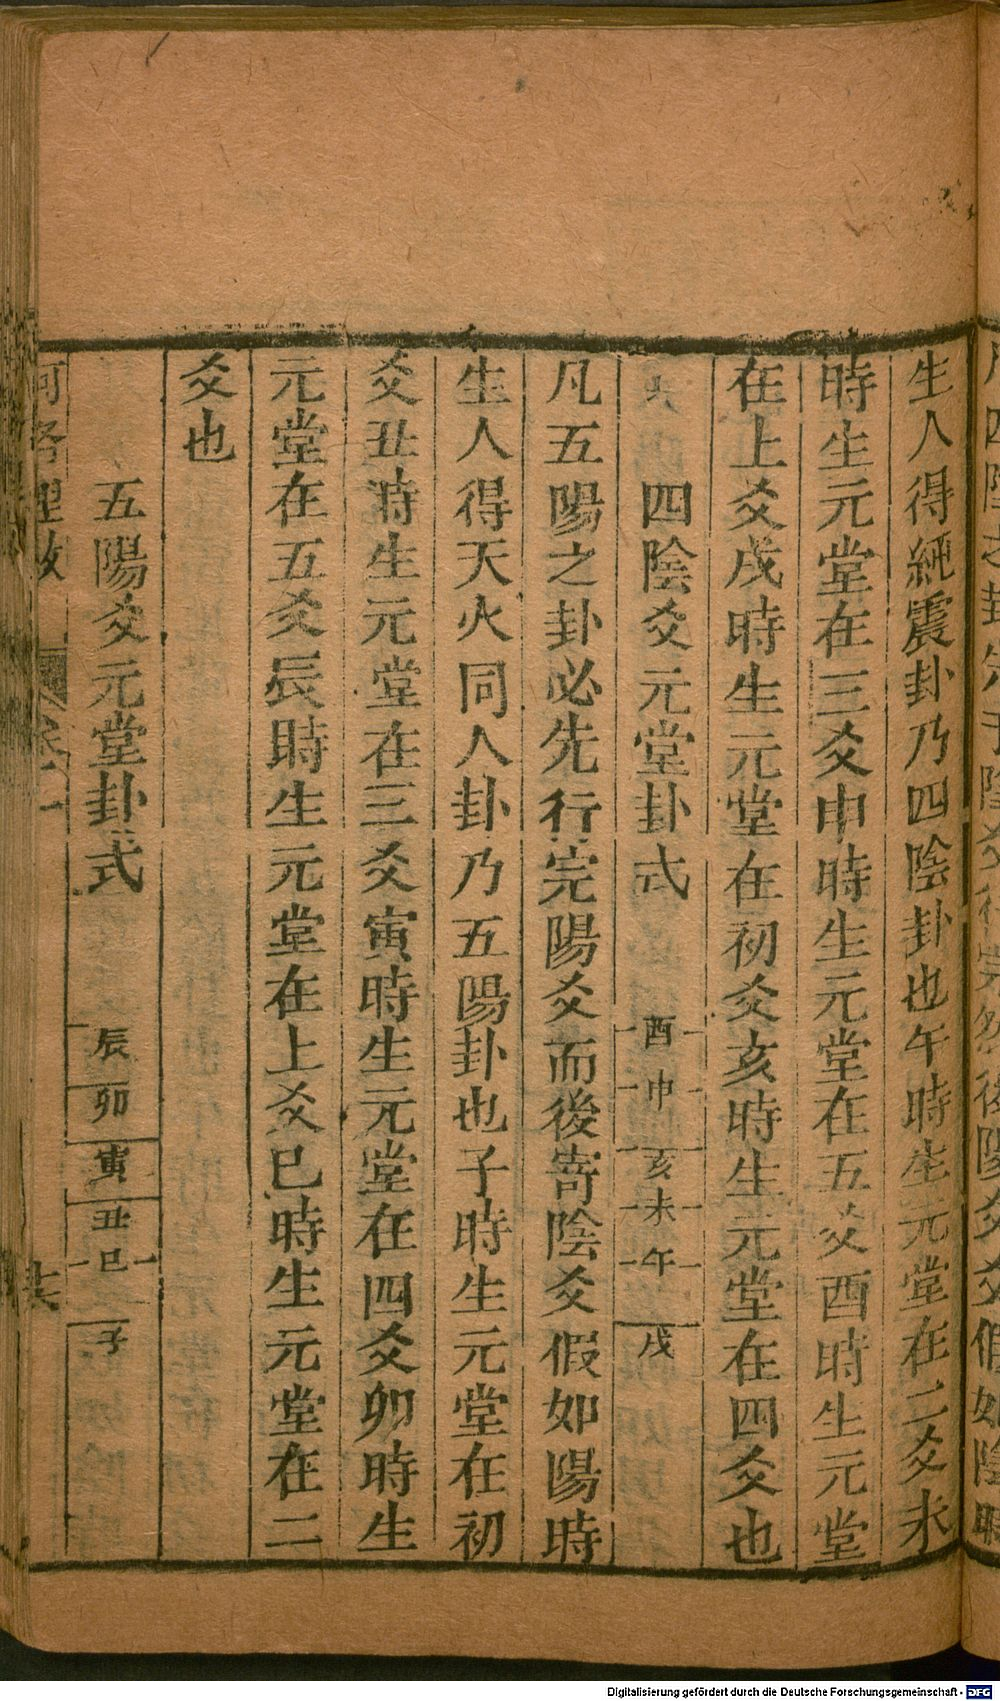 生人得純震卦乃四陰卦也午時生元堂在二爻未
時生元堂在三爻申時生元堂在五爻酉時生元堂
在上爻戌時生元堂在初爻亥時生元堂在四爻也
四陰爻元堂卦式 酉 申 亥 未 午 戌
凡五陽之卦必先行完陽爻而後寄陰爻假如陽時
生人得天火同人卦乃五陽卦也子時生元堂在初
爻丑時生元堂在三爻寅時生元堂在四爻卯時生
元堂在五爻辰時生元堂在上爻巳時生元堂在二
爻也
五陽爻元堂卦式 辰 卯 寅 丑 巳 子
河洛理数
Digitalisierung gefördert durch die Deutsche Forschungsgemeinschaft - DFG